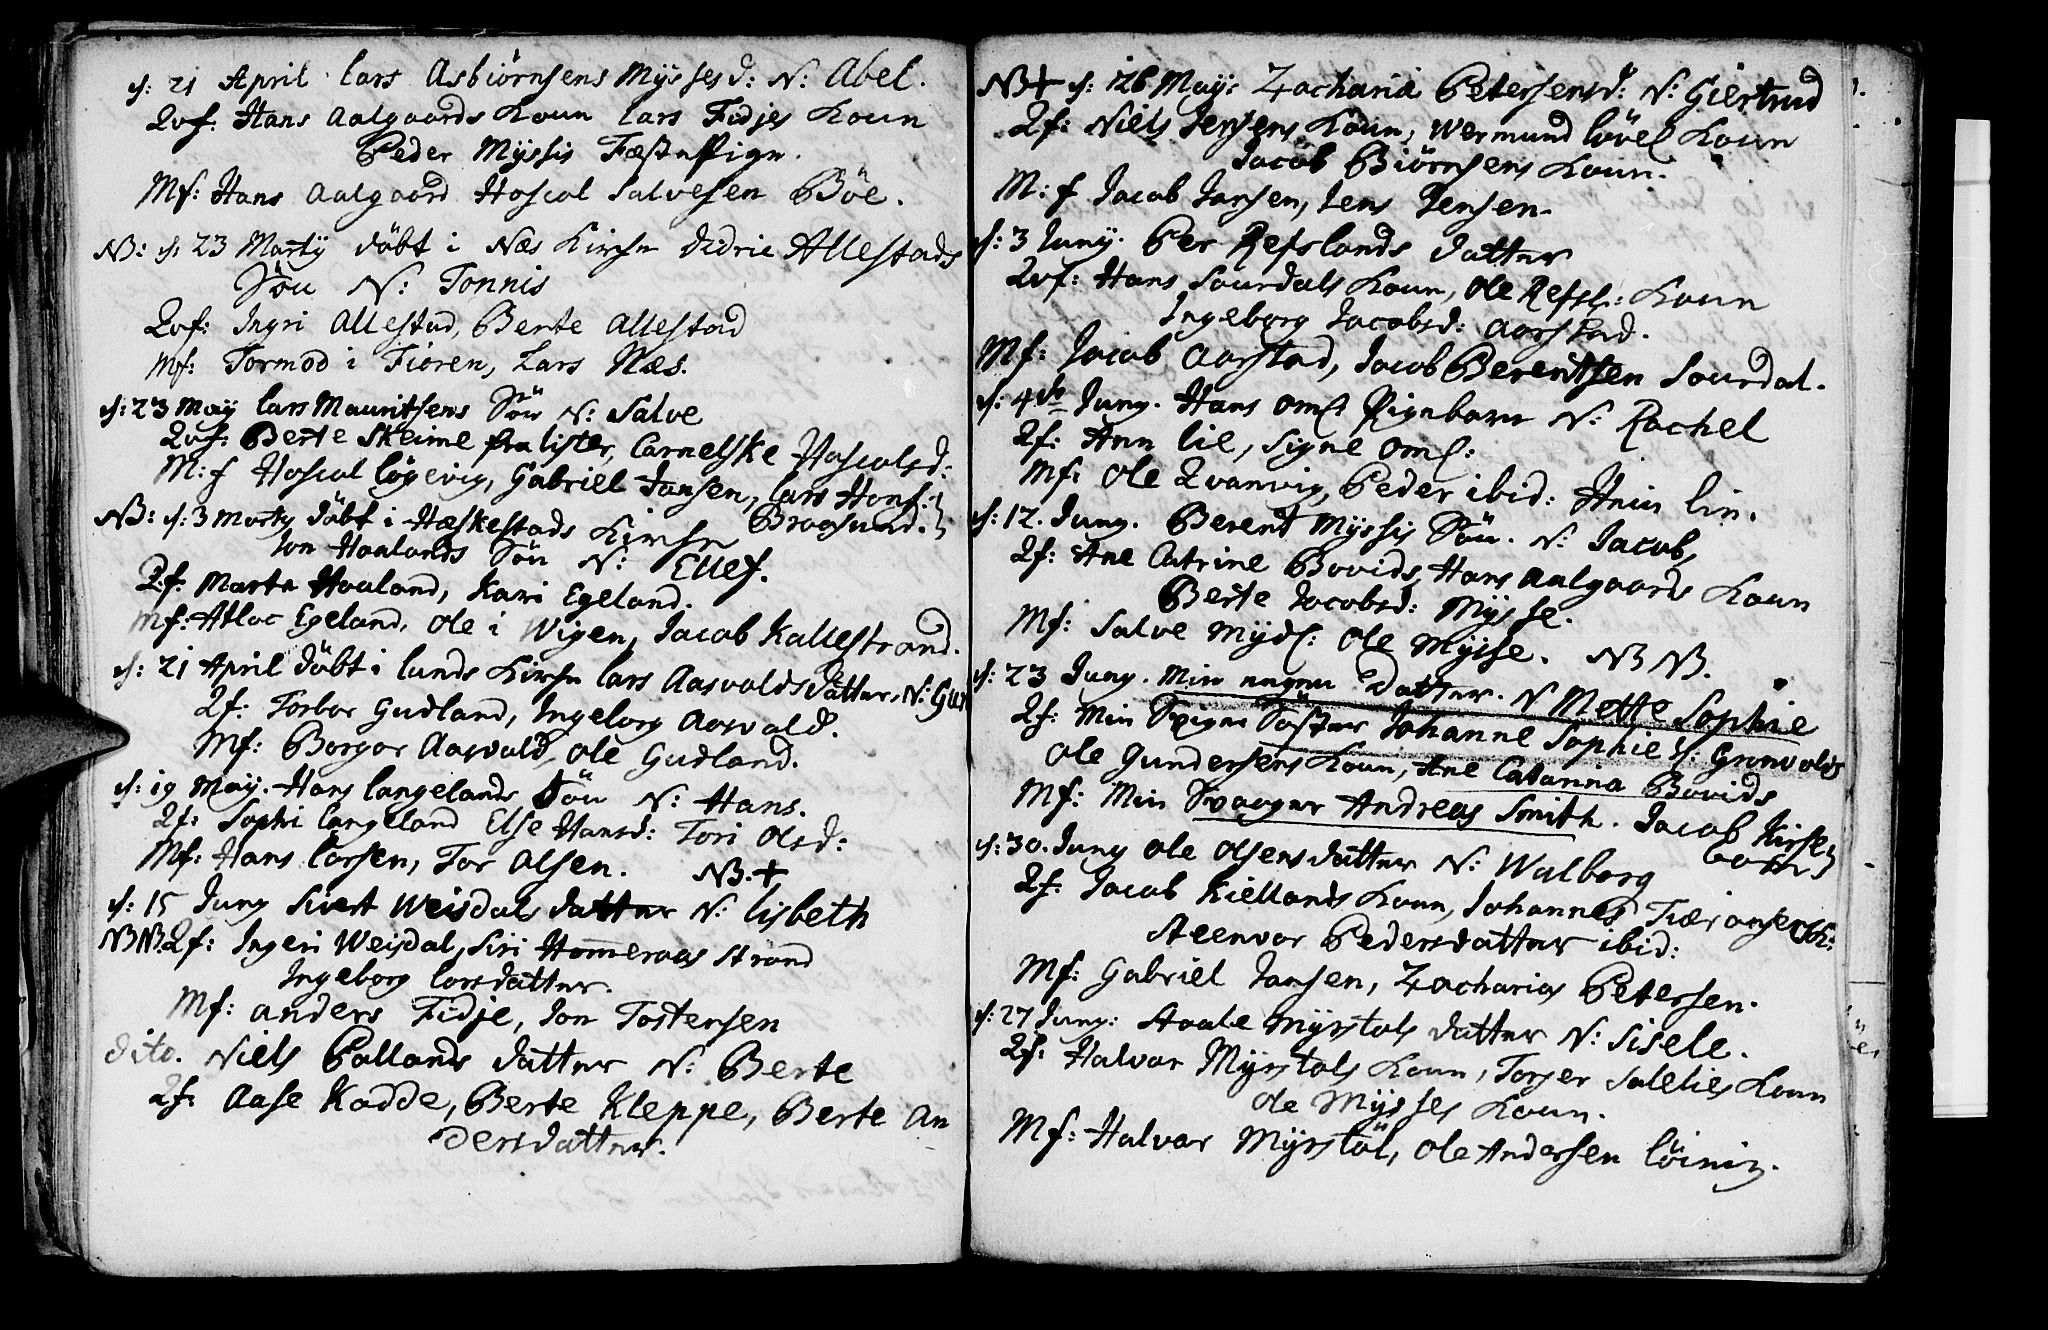 d: 21 April Lars Asbiörnsens Myssesd: N: Abel.
Qvf: Hans Aalgaards Koun Lars Fidjes Koun
Peder Myssis FæstePige.
Mf: Hans Aalgaard Hoscol Salvesen Böe.
NB: d: 23 Marty döbt i Næs Kirke Didric Allestads
Sön N: Tonnis
Qvf: Ingri Allestad, Berte Allestad
Mf: Tormod i Fioren, Lars Næs.
d: 23 May Lars Mauritsens Sön N: Salve
Qvf: Berte Skeime fra Lister, Carnelske Hoscolsd:
M:f Hoscol Lögevig, Gabriel Jansen, Lars Hans:
Braasund.
NB: d: 3 Marty döbt i Hæskestads Kirke
Jon Haalands Sön N: Ellef.
Q.f. Marte Haaland, Kari Egeland.
Mf: Atlac Egeland, Ole i Wigen, Jacob Kallestrand.
d: 21 April döbt i Lunds Kirke Lars Aasvolds Datter, N:
Qf: Torbor Gudland, Ingeborg Aasvold.
Mf: Borgar Aasvald, Ole Gudland.
d: 19 May. Hans Langelands Sön N: Hans.
Qf: Sophi Langeland Else Hansd: Tori Olsd:
Mf: Hans Larsen, Tor Olsen. NB.+
d: 15 Juny Sivert Weisdals datter N: Lisbeth
NB NB. Qf: Ingeri Weisdal, Siri Homeraas Strand
Ingeborg Larsdatter.
Mf: Anders Fidje, Jon Tostensen
dito. Niels Pollands datter N: Berte
Qf: Aase Kadde, Berte Kleppe, Berte An
dersdatter.
NB+ d: 26 May: Zacharia Petersensd: N: Giertrud
Qf: Niels Jensens Koun, Wermund Lövel Koun
Jacob Biörnsens Koun.
M:f Jacob Jansen, Jens Jensen.
d: 3 Juny. Per Refslands datter
Qvf: Hans Sourdals Koun, Ole Refsl: Koun
Ingeborg Jacobsd: Aarstad.
Mf: Jacob Aarstad, Jacob Berentsen Sourdal.
d: 4de Juny. Hans Omd Pigebarn N: Rachel
Qf: Ane Lie, Signe Oml:
Mf: Ole Qvanvig, Peder ibid: Lie.
d: 12. Juny. Berent Myssis Sön. N: Jacob,
Qf: Ane Catrine Bovids, Hans Aalgaards Koun
Berte Jacobsd: Mysse.
Mf: Salve Mydl: Ole Mysse. NB NB.
d: 23 Juny. Min egen Datter. N Mette Sophie
Qf: Min Sviger Söster Johanne Sophie Sl: Gronvolds
Ole Gundersens Koun, Ane Catarina Bovids
Mf: Min Svoger Andreas Smith. Jacob Kirse
boom
d: 30. Juny Ole Olsens datter N: Walborg
Qf: Jacob Kiellands Koun, Johannes Tiær
Steenvor Pedersdatter ibid:
Mf: Gabriel Jansen, Zacharias Petersen.
d: 27 Juny: Staale Myrstols datter N: Sisele.
Qf: Halvor Myrstols Koun, Torjer Salelies Koun
Ole Mysses Koun.
Mf: Halvar Myrstöl, Ole Andersen Löining.